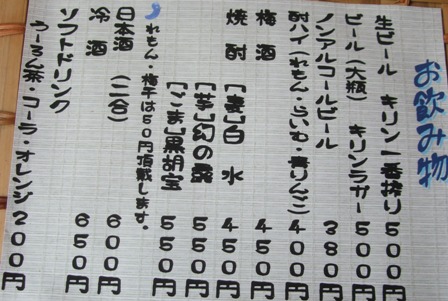 お飲み物
生ビール キリン一番搾り 500円
ビール(大瓶) キリンラガー 500円
ノンアルコールビール 380円
酎ハイ(れもん・らいむ・青りんご) 400円
梅酒 450円
焼酎 [麦]白水 450円
[芋]幻の露 500円
[ごま]黒胡宝 550円
れもん・梅干は50円頂戴します。
日本酒 (二合) 600円
冷酒 650円
ソフトドリンク
うーろん茶・コーラ・オレンジ 200円